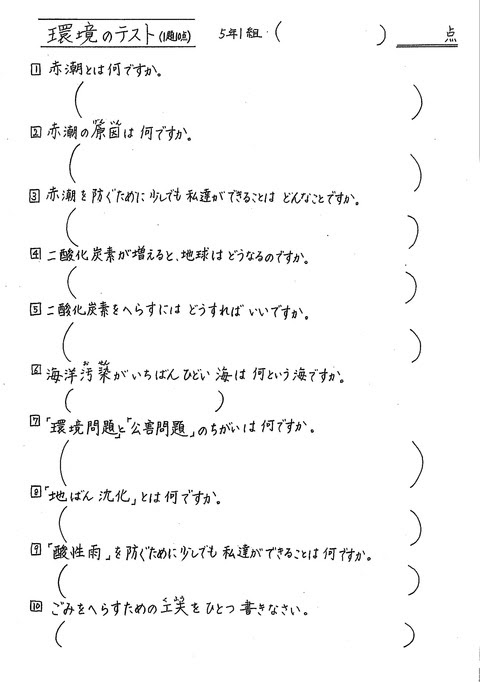 環境のテスト(1題10点) 5年1組 ( ) 点
1 赤潮とは何ですか。
( )
2 赤潮の原因は何ですか。
( )
3 赤潮を防ぐために少しでも私達ができることはどんなことですか。
( )
4 二酸化炭素が増えると、地球はどうなるのですか。
( )
5 二酸化炭素をへらすにはどうすればいいですか。
( )
6 海洋汚染がいちばんひどい海は何という海ですか。
( )
7 「環境問題」と「公害問題」のちがいは何ですか。
( )
8 「地ばん沈化」とは何ですか。
( )
9 「酸性雨」を防ぐために少しでも私達ができることは何ですか。
( )
10 ごみをへらすための工夫をひとつ書きなさい。
( )